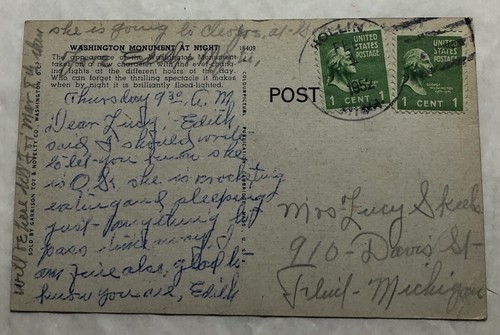 she is going to
WASHINGTON MONUMENT AT NIGHT
The appearance of the Washington Monument
takes on a new character with the ever chang-
ing lights at the different hours of the day.
Who can forget the thrilling spectacle it makes
when by night it is brilliantly flood-lighted.
Thursday 930 A.M.
Dear Lucy, Edith
said I should write
to let you know she
is O.K. she is
eating and sleeping
just anything to
pass time away. I
am fine also, glad to
know you are, Edith
will be here
SOLD BY GARRISON TOY & NOVELTY CO., WASHINGTON,
POST
HOLLIN
1952
UNITED
STATES
POSTAGE
1 CENT 1
UNITED
STATES
POSTAGE
1 CENT 1
Mrs Lucy
910 - Davis St -
Flint - Michigan